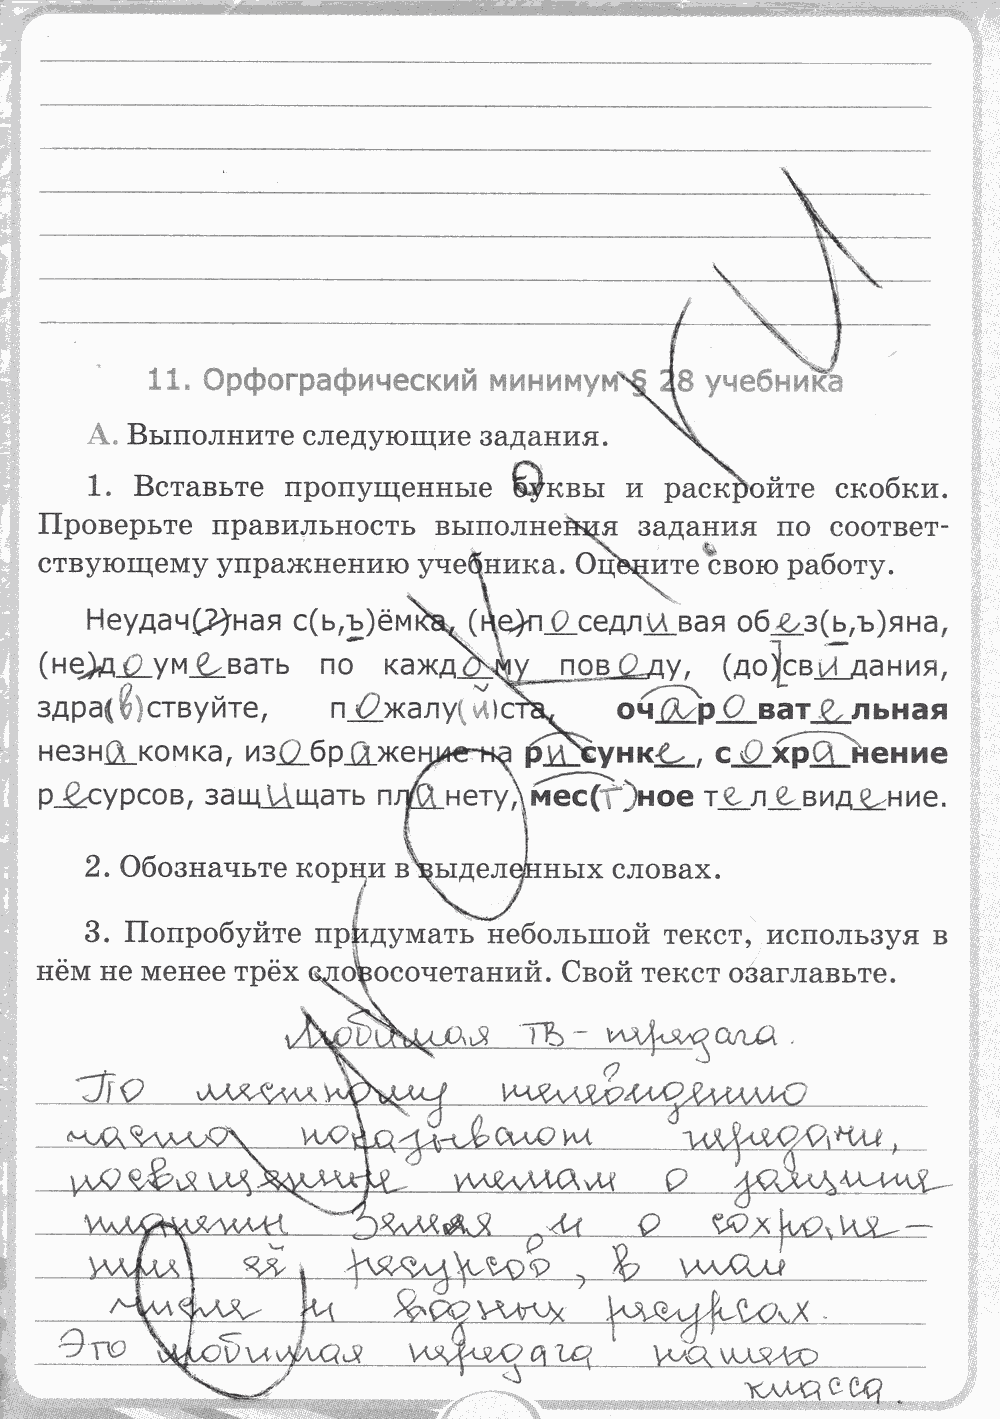 11. Орфографический минимум § 28 учебника
А. Выполните следующие задания.
1. Вставьте пропущенные буквы и раскройте скобки.
Проверьте правильность выполнения задания по соответ-
ствующему упражнению учебника. Оцените свою работу.
Неудач(?)ная с(ь,ъ)ёмка, (не)поседливая обез(ь,ъ)яна,
(не)доумевать по каждому поводу, (до)свидания,
здра(в)ствуйте, пожалу(й)ста, очаровательная
незнакомка, изображение на рисунке, сохранение
ресурсов, защищать планету, мес(т)ное телевидение.
2. Обозначьте корни в выделенных словах.
3. Попробуйте придумать небольшой текст, используя в
нём не менее трёх словосочетаний. Свой текст озаглавьте.
Любимая ТВ-передача.
По местному телевидению
часто показывают передачи,
посвященные темам о защите
планеты Земля и о сохране-
нии её ресурсов, в том
числе и водных ресурсах.
Это любимая передача нашего
класса.